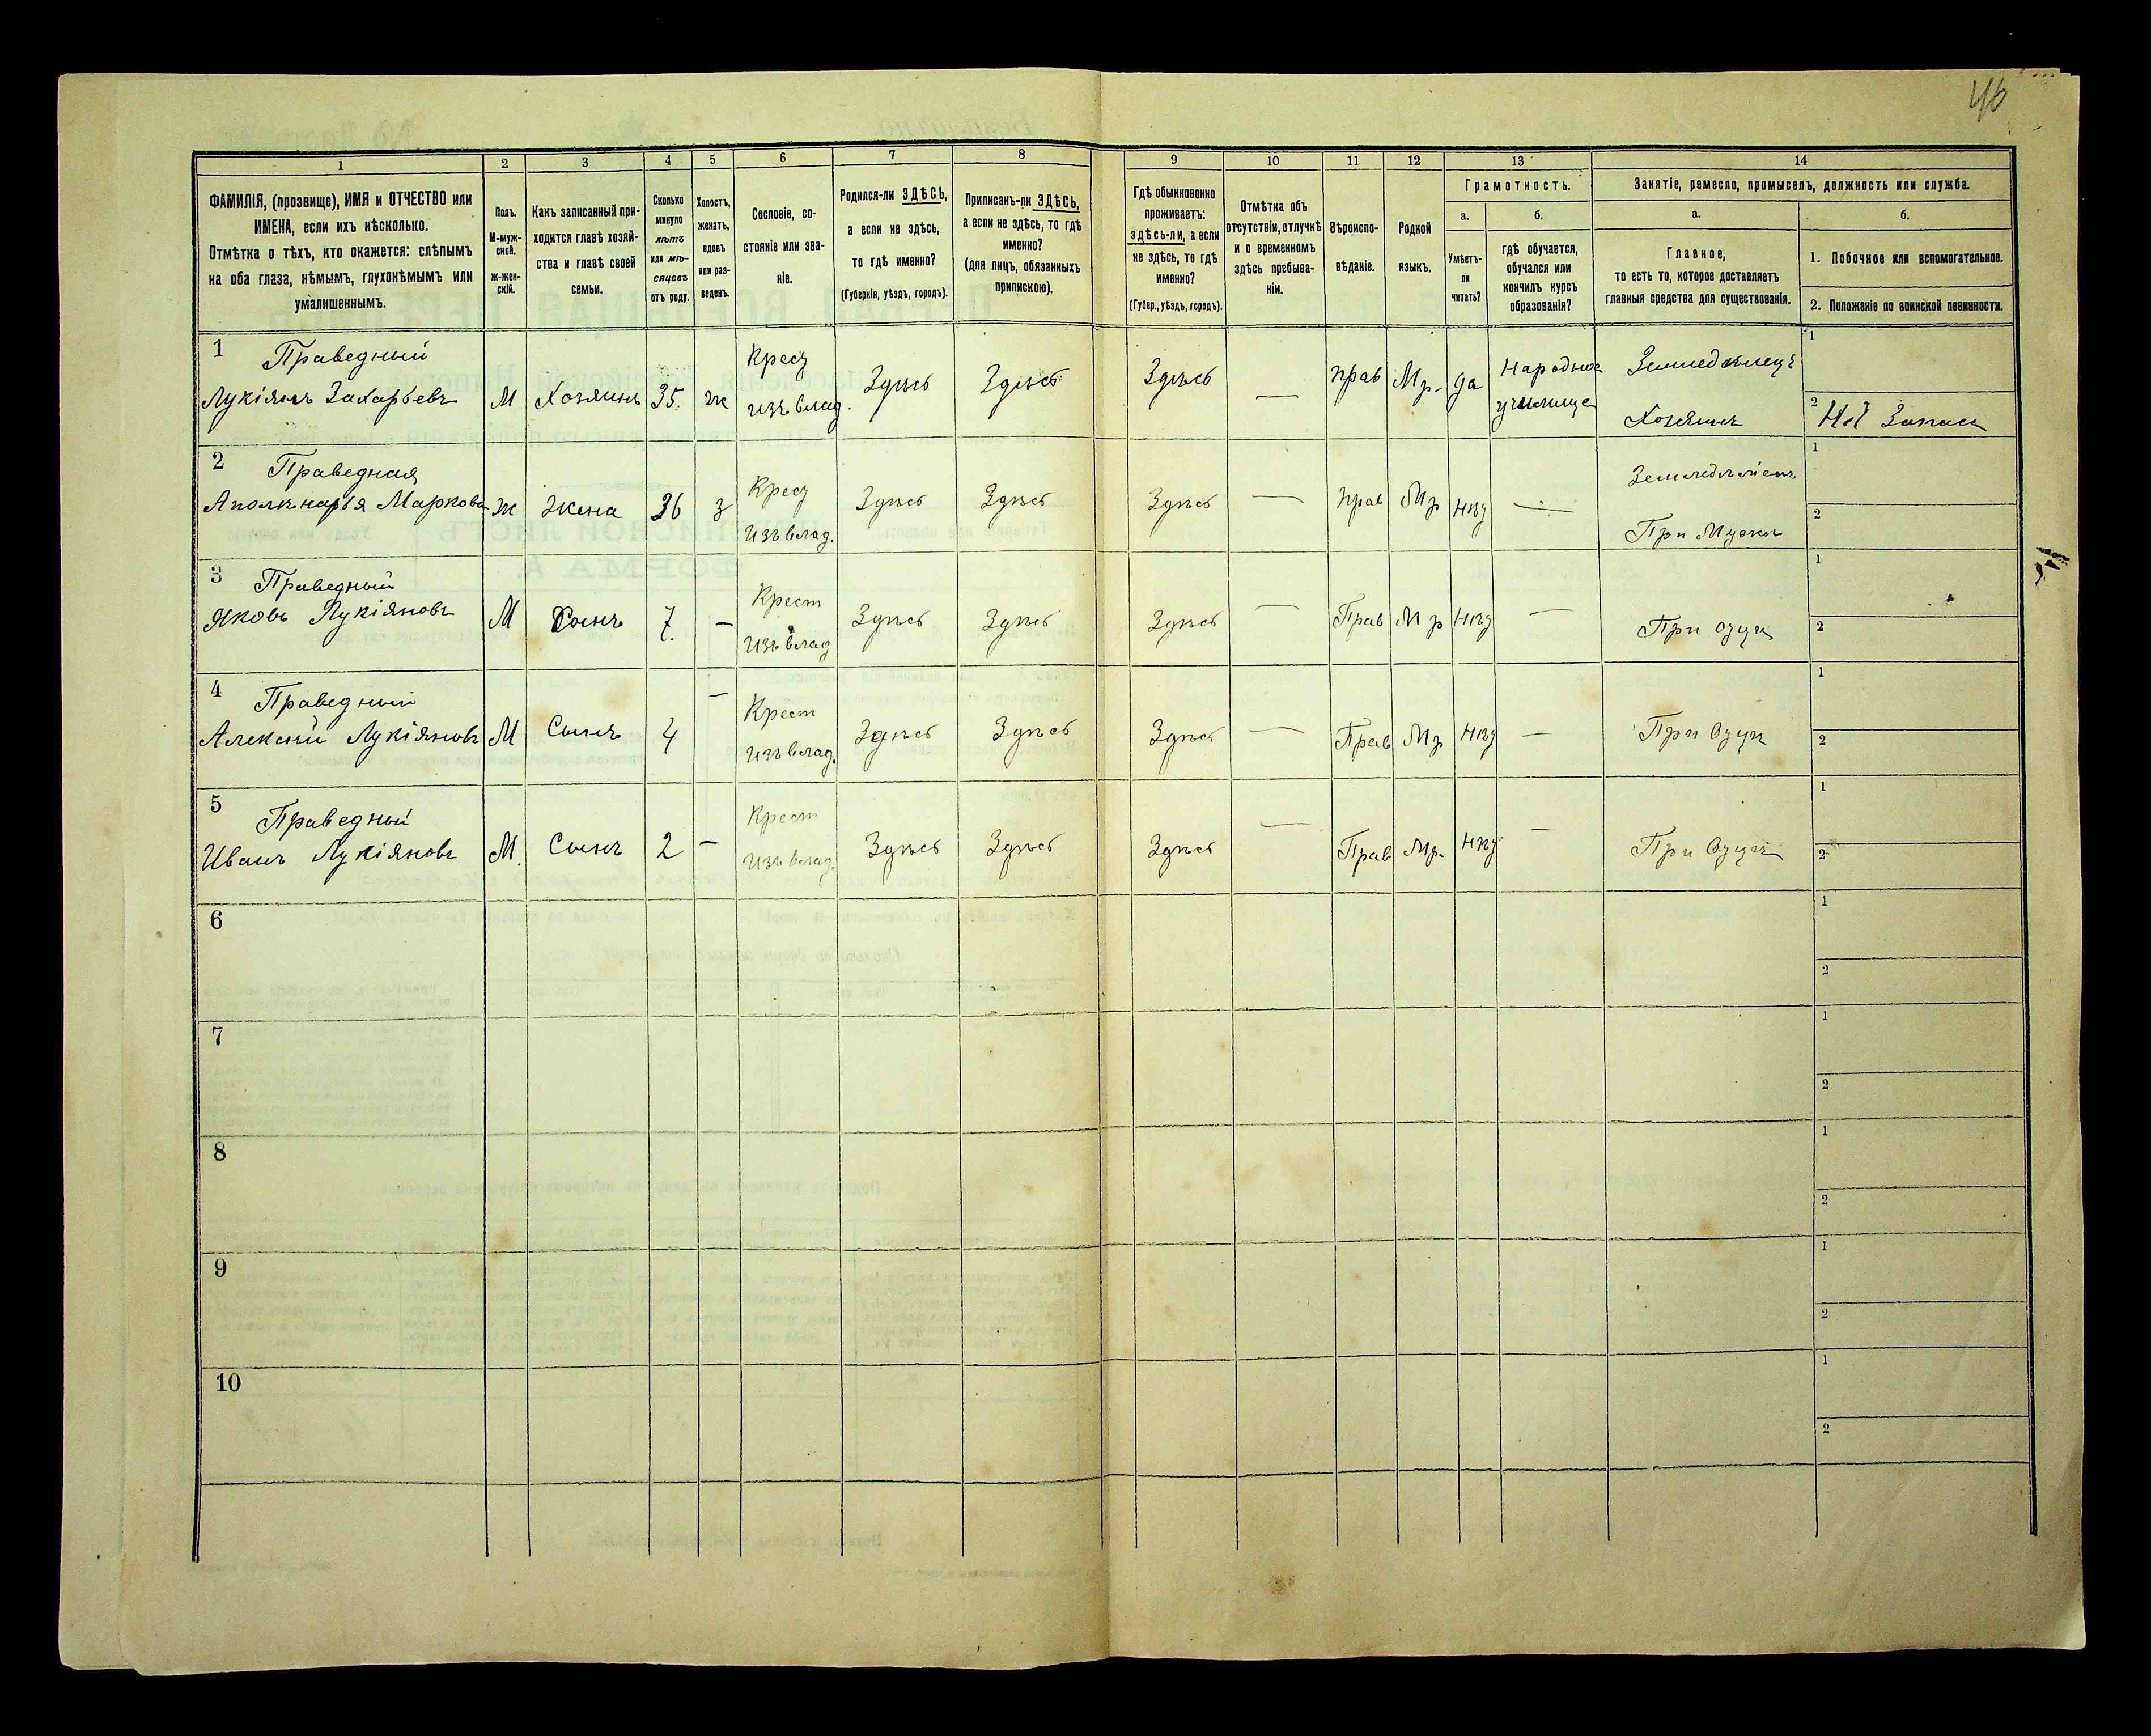 46
1 2 3 4 5 6 7 8 9 10 11 12 13 14
ФАМИЛІЯ, (прозвище), ИМЯ и ОТЧЕСТВО или
ИМЕНА, если ихъ нѣсколько.
Отмѣтка о тѣхъ, кто окажется: слѣпымъ
на оба глаза, нѣмымъ, глухонѣмымъ или
умалишеннымъ.
Полъ.
М-муж-
ской.
ж-жен-
скій.
Какъ записанный при-
ходится главѣ хозяй-
ства и главѣ своей
семьи.
Сколько
минуло
лѣтъ
или мѣ-
сяцевъ
отъ роду.
Холостъ,
женатъ,
вдовъ
или раз-
веденъ.
Сословіе, со-
стояніе или зва-
ніе.
Родился-ли ЗДѢСЬ,
а если не здѣсь,
то гдѣ именно?
(Губернія, уѣздъ, городъ).
Приписанъ-ли ЗДѢСЬ,
а если не здѣсь, то гдѣ
именно?
(для лицъ, обязанныхъ
припискою).
Гдѣ обыкновенно
проживаетъ:
здѣсь-ли, а если
не здѣсь, то гдѣ
именно?
(Губер., уѣздъ, городъ).
Отмѣтка объ
отсутствіи, отлучкѣ
и о временномъ
здѣсь пребыва-
ніи.
Вѣроиспо-
вѣданіе.
Родной
языкъ.
Грамотность.
а.
Умѣетъ-
ли
читать?
б.
гдѣ обучается,
обучался или
кончилъ курсъ
образованія?
Занятіе, ремесло, промыселъ, должность или служба.
а.
Главное,
то есть то, которое доставляетъ
главныя средства для существованія.
б.
1. Побочное или вспомогательное.
2. Положеніе по воинской повинности.
1 Праведный
Лукіянъ Захарьевъ
М
Хозяинъ
35
ж
Крест
изъ влад.
Здѣсь
Здѣсь
Здѣсь
—
прав
Мр.
да
Народное
училище
Земледѣлецъ
Хозяинъ
1
2
Запаса
2 Праведная
Аполинарья Маркова
ж
Жена
36
з
Крест
изъ влад.
Здѣсь
Здѣсь
Здѣсь
—
прав
Мр
нѣт
—
При Мужѣ
1
2
3 Праведный
Яковъ Лукіяновъ
М
Сынъ
7.
—
Крест
изъ влад
Здѣсь
Здѣсь
Здѣсь
—
Прав
Мр
нѣт
—
При отцѣ
1
2
4 Праведный
Алексѣй Лукіяновъ
М
Сынъ
4
—
Крест
изъ влад.
Здѣсь
Здѣсь
Здѣсь
—
Прав
Мр
нѣт
—
При Отцѣ
1
2
5 Праведный
Иванъ Лукіяновъ
М.
Сынъ
2
—
Крест
изъ влад.
Здѣсь
Здѣсь
Здѣсь
—
Прав
Мр.
нѣт
—
При Отцѣ
1
2
6
1
2
7
1
2
8
1
2
9
1
2
10
1
2